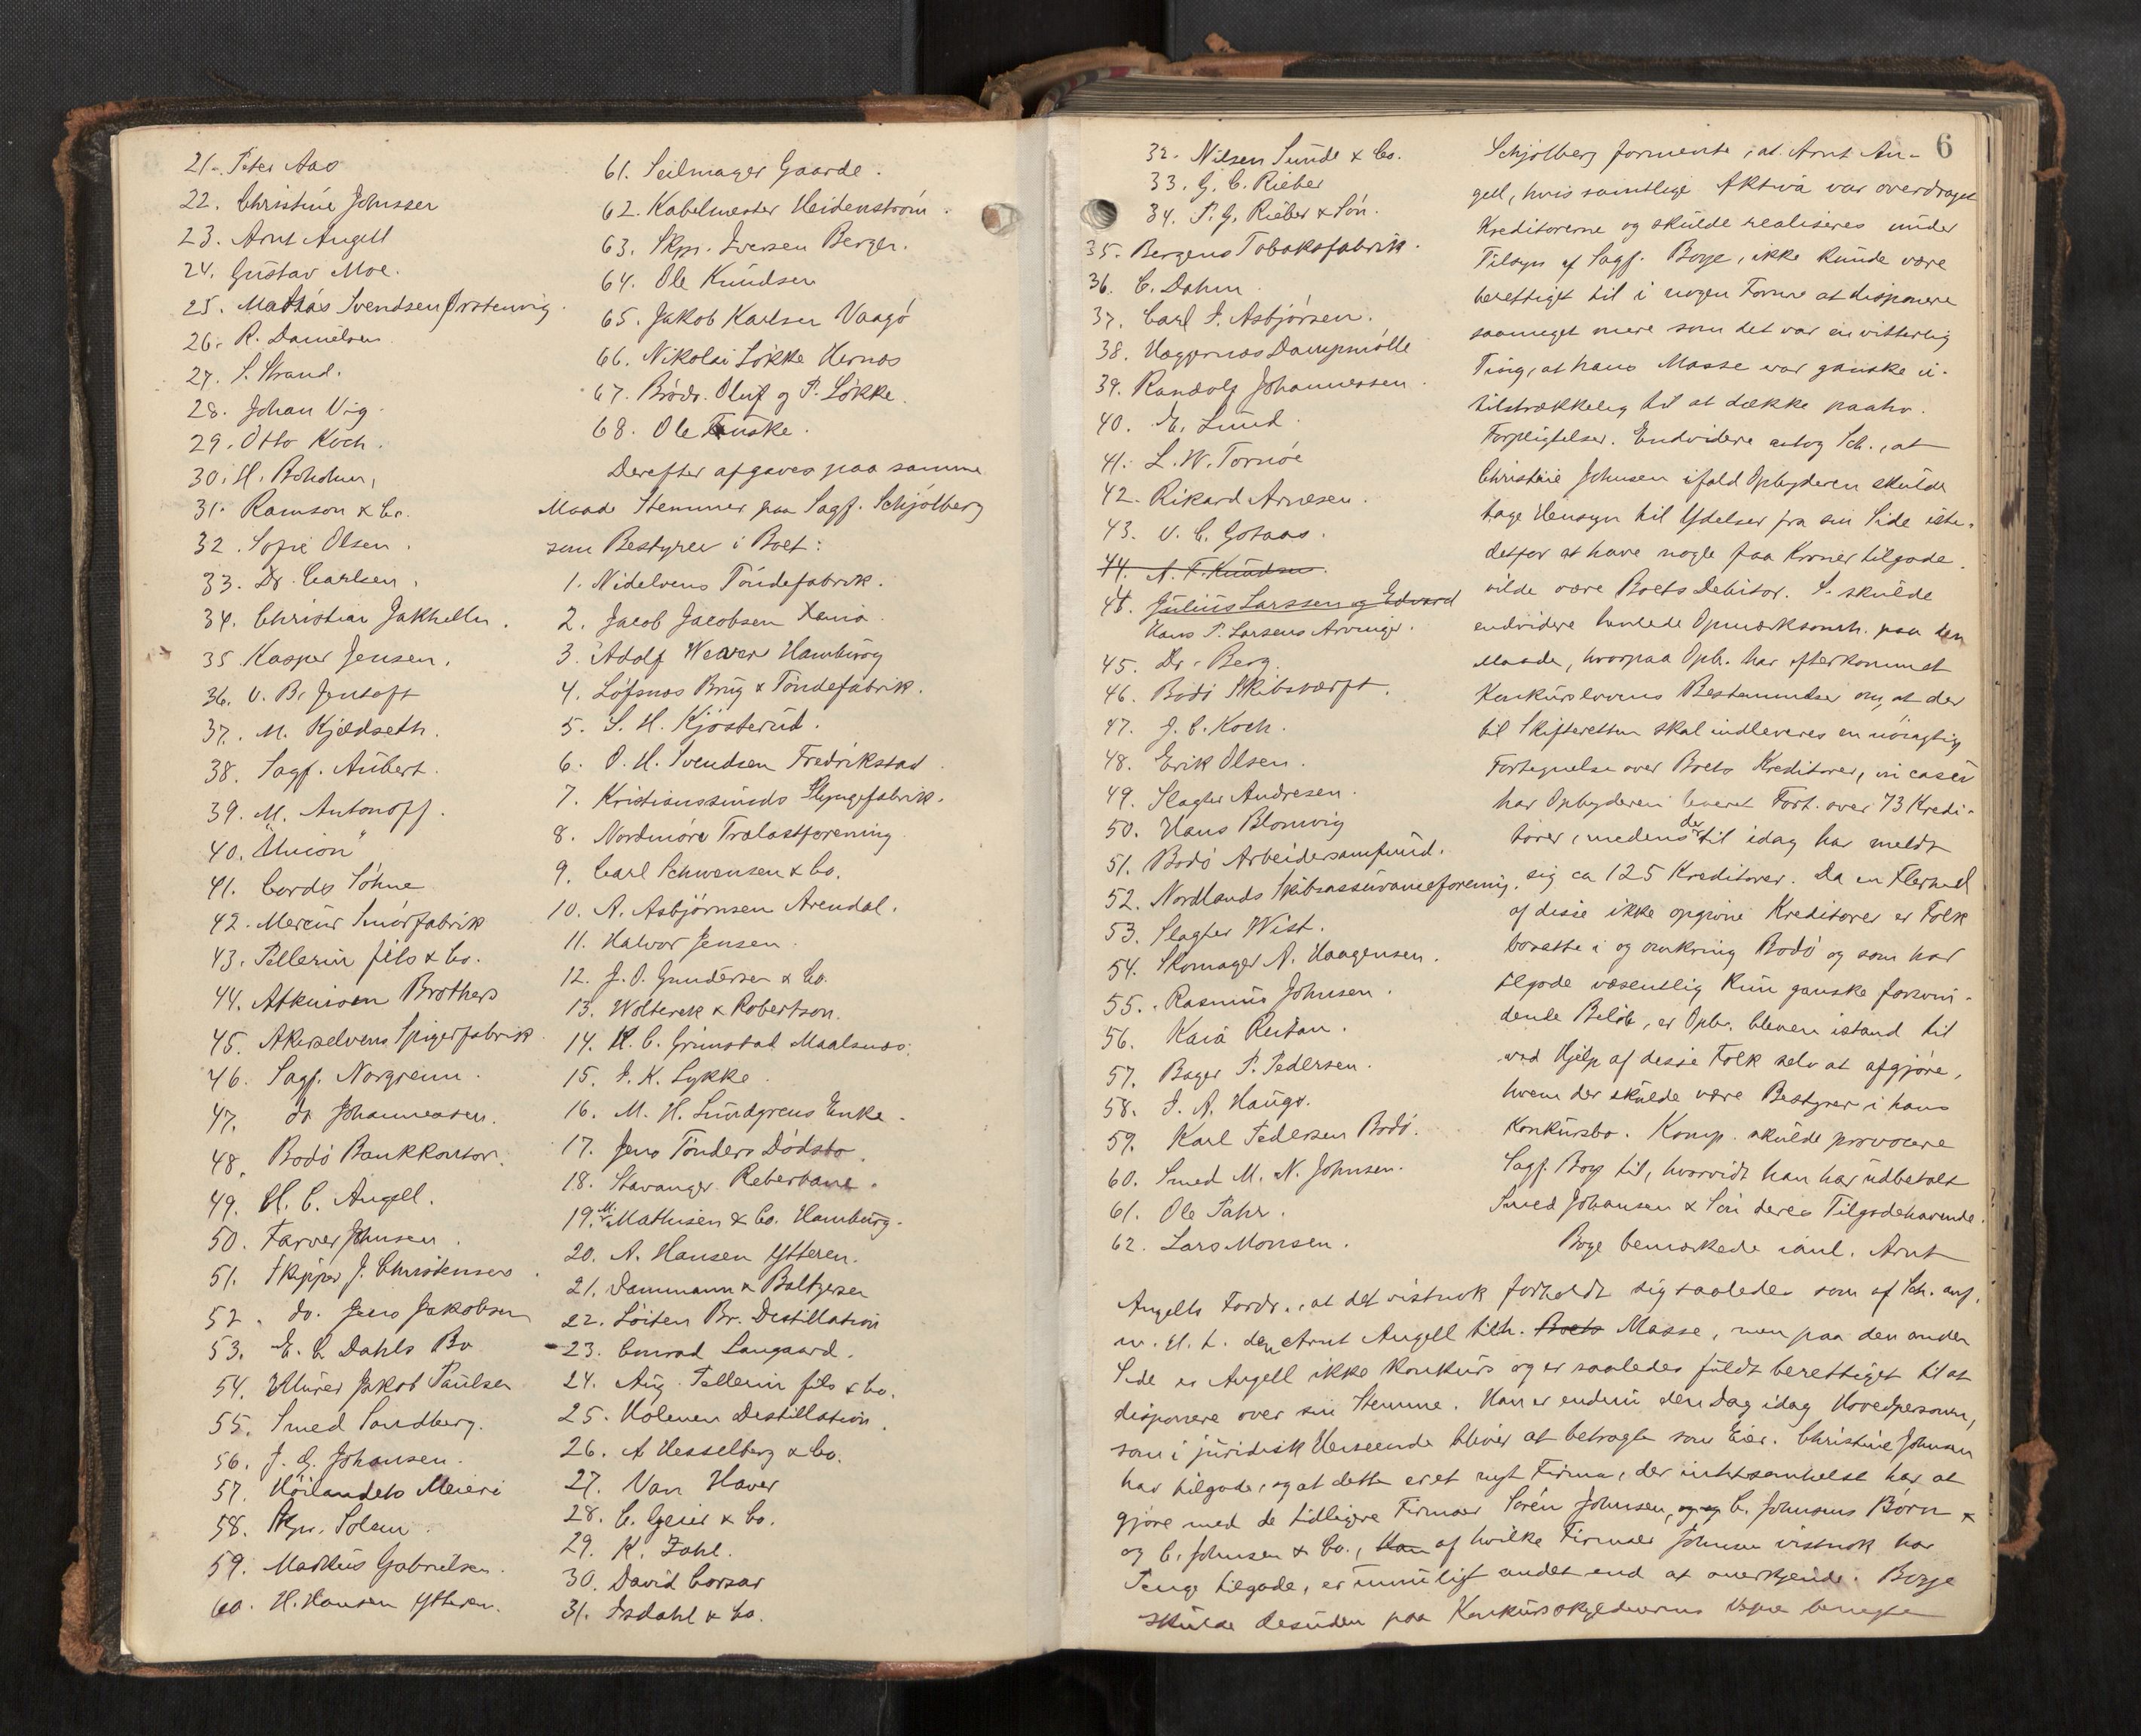 21. Peter Aas
22. Christine Johnsen
23. Arnt Angell
24. Gustav Moe.
25. Mathias Svendsen Örstenvig.
26. R. Danielsen
27. S. Strand.
28. Johan Vig.
29. Otto Koch.
30. H.
31. Ramson & Co.
32. Sofie Olsen.
33. Dr. Carlsen.
34. Christian Jakhelln.
35 Kasper Jensen.
36. V. B. Jentoft
37. M. Kjeldseth.
38. Sagf. Aubert.
39. M. Antonoff.
40. "Union"
41. Cordes Söhne
42. Mercur Smörfabrik
43. Pellerin fils & Co.
44. Atkinson Brothers
45. Akerselvens Spigerfabrik
46. Sagf. Norgrenn.
47. do Johannessen.
48. Bodö Bankkontor.
49. H. C. Angell.
50. Farver Johnsen.
51. Skipper J. Christensen.
52. do. Jens Jakobsen
53. E. C. Dahls Bo
54. Murer Jakob Paulsen
55. Smed Sandberg.
56. J. G. Johansen.
57. Höilandets Meieri
58. Skpr. Solem.
59. Markus Gabrielsen.
60. H. Hansen Ytteren.
61. Seilmager Gaarde.
62. Kabelmester Heidenström.
63. Skpr. Iversen Bergen.
64. Ole Knudsen
65. Jakob Karlsen Vaagö
66. Nikolai Lökke Hernæs
67. Brödr. Oluf og P. Lökke.
68. Ole Fauske.
Derefter afgaves paa samme
Maade Stemmer paa Sagf. Schjölberg
som Bestyrer i Boet:
1. Nidelvens Töndefabrik.
2. Jacob Jacobsen Xania.
3. Adolf Weaver Hamburg
4. Löfsnæs Brug & Töndefabrik.
5. S. H. Kjösterud.
6. O. H. Svendsen Fredrikstad.
7. Kristianssunds Slyngefabrik.
8. Nordmöre Trælastforening
9. Carl Schwensen & Co.
10. A. Asbjörnsen Arendal.
11. Halvor Jensen.
12. J. O. Gundersen & Co.
13. Wolterek & Robertson.
14. H. C. Grimstad Maalsnæs.
15. I. K. Lykke.
16. M. H. Lundgrens Enke.
17. Jens Tönders Dödsbo.
18. Stavanger Reberbane.
19. M. Mathisen & Co. Hamburg.
20. A. Hansen Ytteren.
21. Dammann & Baltzersen
22. Löiten Br. Destillation
23. Conrad Langaard.
24. Aug. Pellerin fils & Co.
25. Holmen Destillation.
26. A Hesselberg & Co.
27. Van Haver
28. C. Geier & Co.
29. K. Zahl.
30. David Corsar
31. Isdahl & Co.
6
32. Nilsen Sunde & Co.
33. G. C. Rieber
34. P. G. Rieber & Sön.
35. Bergens Tobaksfabrik.
36. C. Dahm
37. Carl J. Asbjörsen.
38. Vaggernæs Dampmölle
39. Randolf Johannessen.
40. E. Lund.
41. L. W. Tornöe
42. Rikard Arnesen.
43. V. C. Gotaas.
44. A. F. Knudsen.
44. Julius Larssen og Edvard
Hans P. Larsens Arvinger.
45. Dr. Berg.
46. Bodö Skibsværft.
47. J. C. Koch.
48. Erik Olsen.
49. Slagter Andresen.
50. Hans Blomvig
51. Bodö Arbeidersamfund.
52. Nordlands Skibsassuranceforening.
53. Slagter Wist.
54. Skomager N. Haagensen.
55. Rasmus Johnsen.
56. Kaia Reitan.
57. Bager P. Pedersen.
58. J. A. Hauge.
59. Karl Pedersen Bodö.
60. Smed M. N. Johnsen.
61. Ole Pahr.
62. Lars Monsen.
Schjölberg formente, at Arnt An-
gell, hvis samtlige Aktiva var overdraget
Kreditorerne og skulde realiseres under
Tilsyn af Sagf. Boye, ikke kunde være
berettiget til i nogen Form at disponere
saameget mere som det var en vitterlig
Ting, at hans Masse var ganske u-
tilstrækkelig til at dække paahv.
Forpligtelser. Endvidere antog Sch., at
Christine Johnsen ifald Opbyderen skulde
tage Hensyn til Ydelser fra sin Side iste-
detfor at have nogle faa Kroner tilgode.
vilde være Boets Debitor. S. skulde
endvidere henlede Opmærksomh. paa den
Maade, hvorpaa Opb. har efterkommet
Konkurslovens Bestemmelser om, at der
til Skifteretten skal indleveres en nöiagtig
Fortegnelse over Boets Kreditorer, in casu
har Opbyderen leveret Fort. over 73 Kredi-
torer, medens der til idag har meldt
sig ca 125 Kreditorer. Da en Flerhed
af disse ikke opgivne Kreditorer er Folk
bosatte i og omkring Bodö og som har
tilgode væsentlig kun ganske forsvin-
dende Belöb, er Opb. bleven istand til
ved Hjelp af disse Folk selv at afgjöre,
hvem der skulde være Bestyrer i hans
Konkursbo. Komp. skulde provocere
Sagf. Boye til, hvorvidt han har udbetalt
Smed Johansen & Sön deres Tilgodehavende.
Boye bemærkede i anl. Arnt
Angells Fordr., at det vistnok forholdt sig saaledes som af Sch. anf.
m. H. t. den Arnt Angell tilh. Boets Masse, men paa den anden
Side er Angell ikke konkurs og er saaledes fuldt berettiget til at
disponere over sin Stemme. Han er endnu den Dag idag Hovedpersonen,
som i juridisk Henseende bliver at betragte som Eier. Christine Johnsen
har tilgode, og at dette er et nyt Firma, der intetsomhelst har at
gjöre med de tidligere Firmaer Sören Johnsen, og C. Johnsens Börn &
og C. Johnsen & Co., af hvilke Firmaer Johnsen vistnok har
Penge tilgode, er umuligt andet end at anerkjende. Boye
skulde desuden paa Konkursskyldnerens Vegne benegte